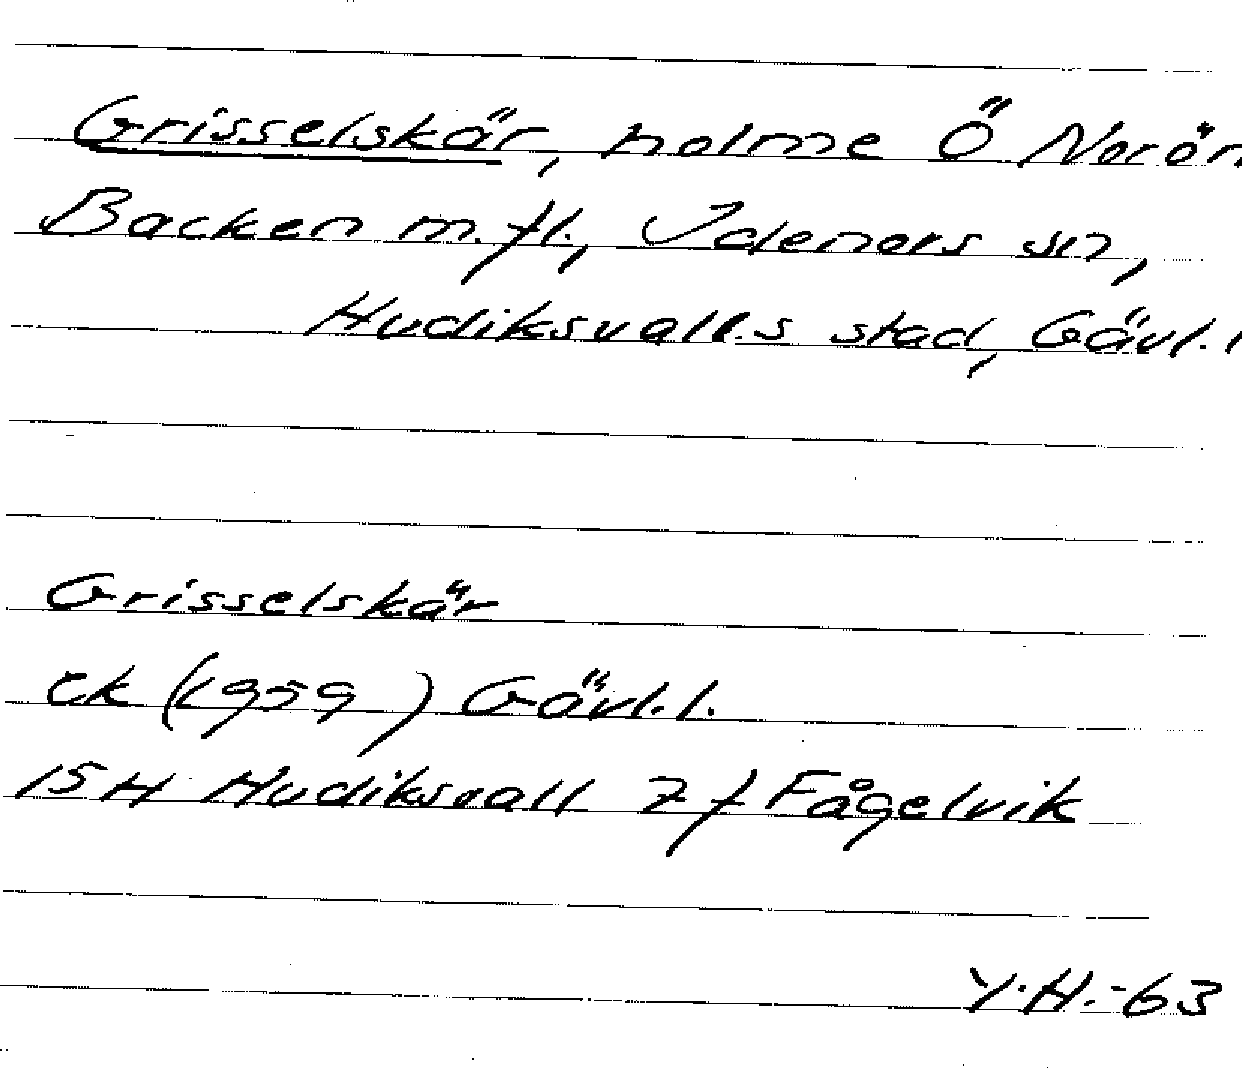 Grisselskär, holme Ö Norön
Backen m.fl., Idenors sn,
Hudiksvalls stad, Gävl.l
Grisselskär
ek (1959) Gävl.l.
15H Hudiksvall 7f Fågelvik
Y.H.-63